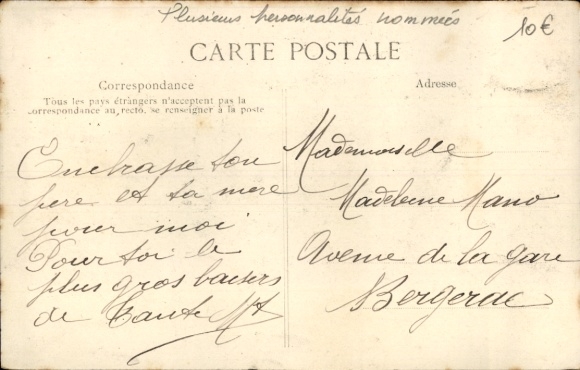 Plusieurs personnalités nommées
10€
CARTE POSTALE
Correspondance
Tous les pays étrangers n'acceptent pas la
correspondance au recto, se renseigner à la poste
Adresse
Embrasse ton
père et ta mère
pour moi
Pour toi le
plus gros baisers
de Tante
Mademoiselle
Madeleine Mano
Avenue de la gare
Bergerac